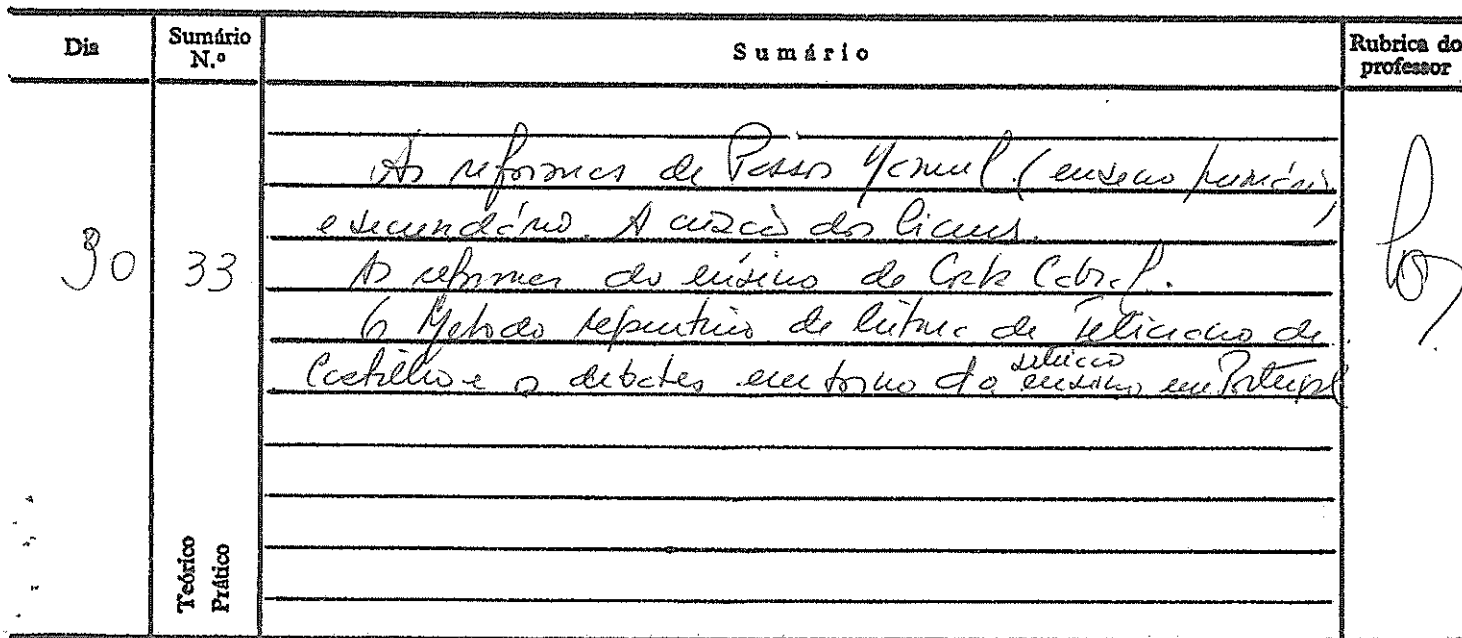 Dia
Sumário N.º
Sumário
Rubrica do professor
As reformas de Passos Manuel (ensino primário
e secundário. A criação dos liceus.
30
33
As reformas do ensino de Costa Cabral.
O Método repentino de leitura de Feliciano de
Castilho e os debates em torno do ensino em Portugal
Teórico
Prático